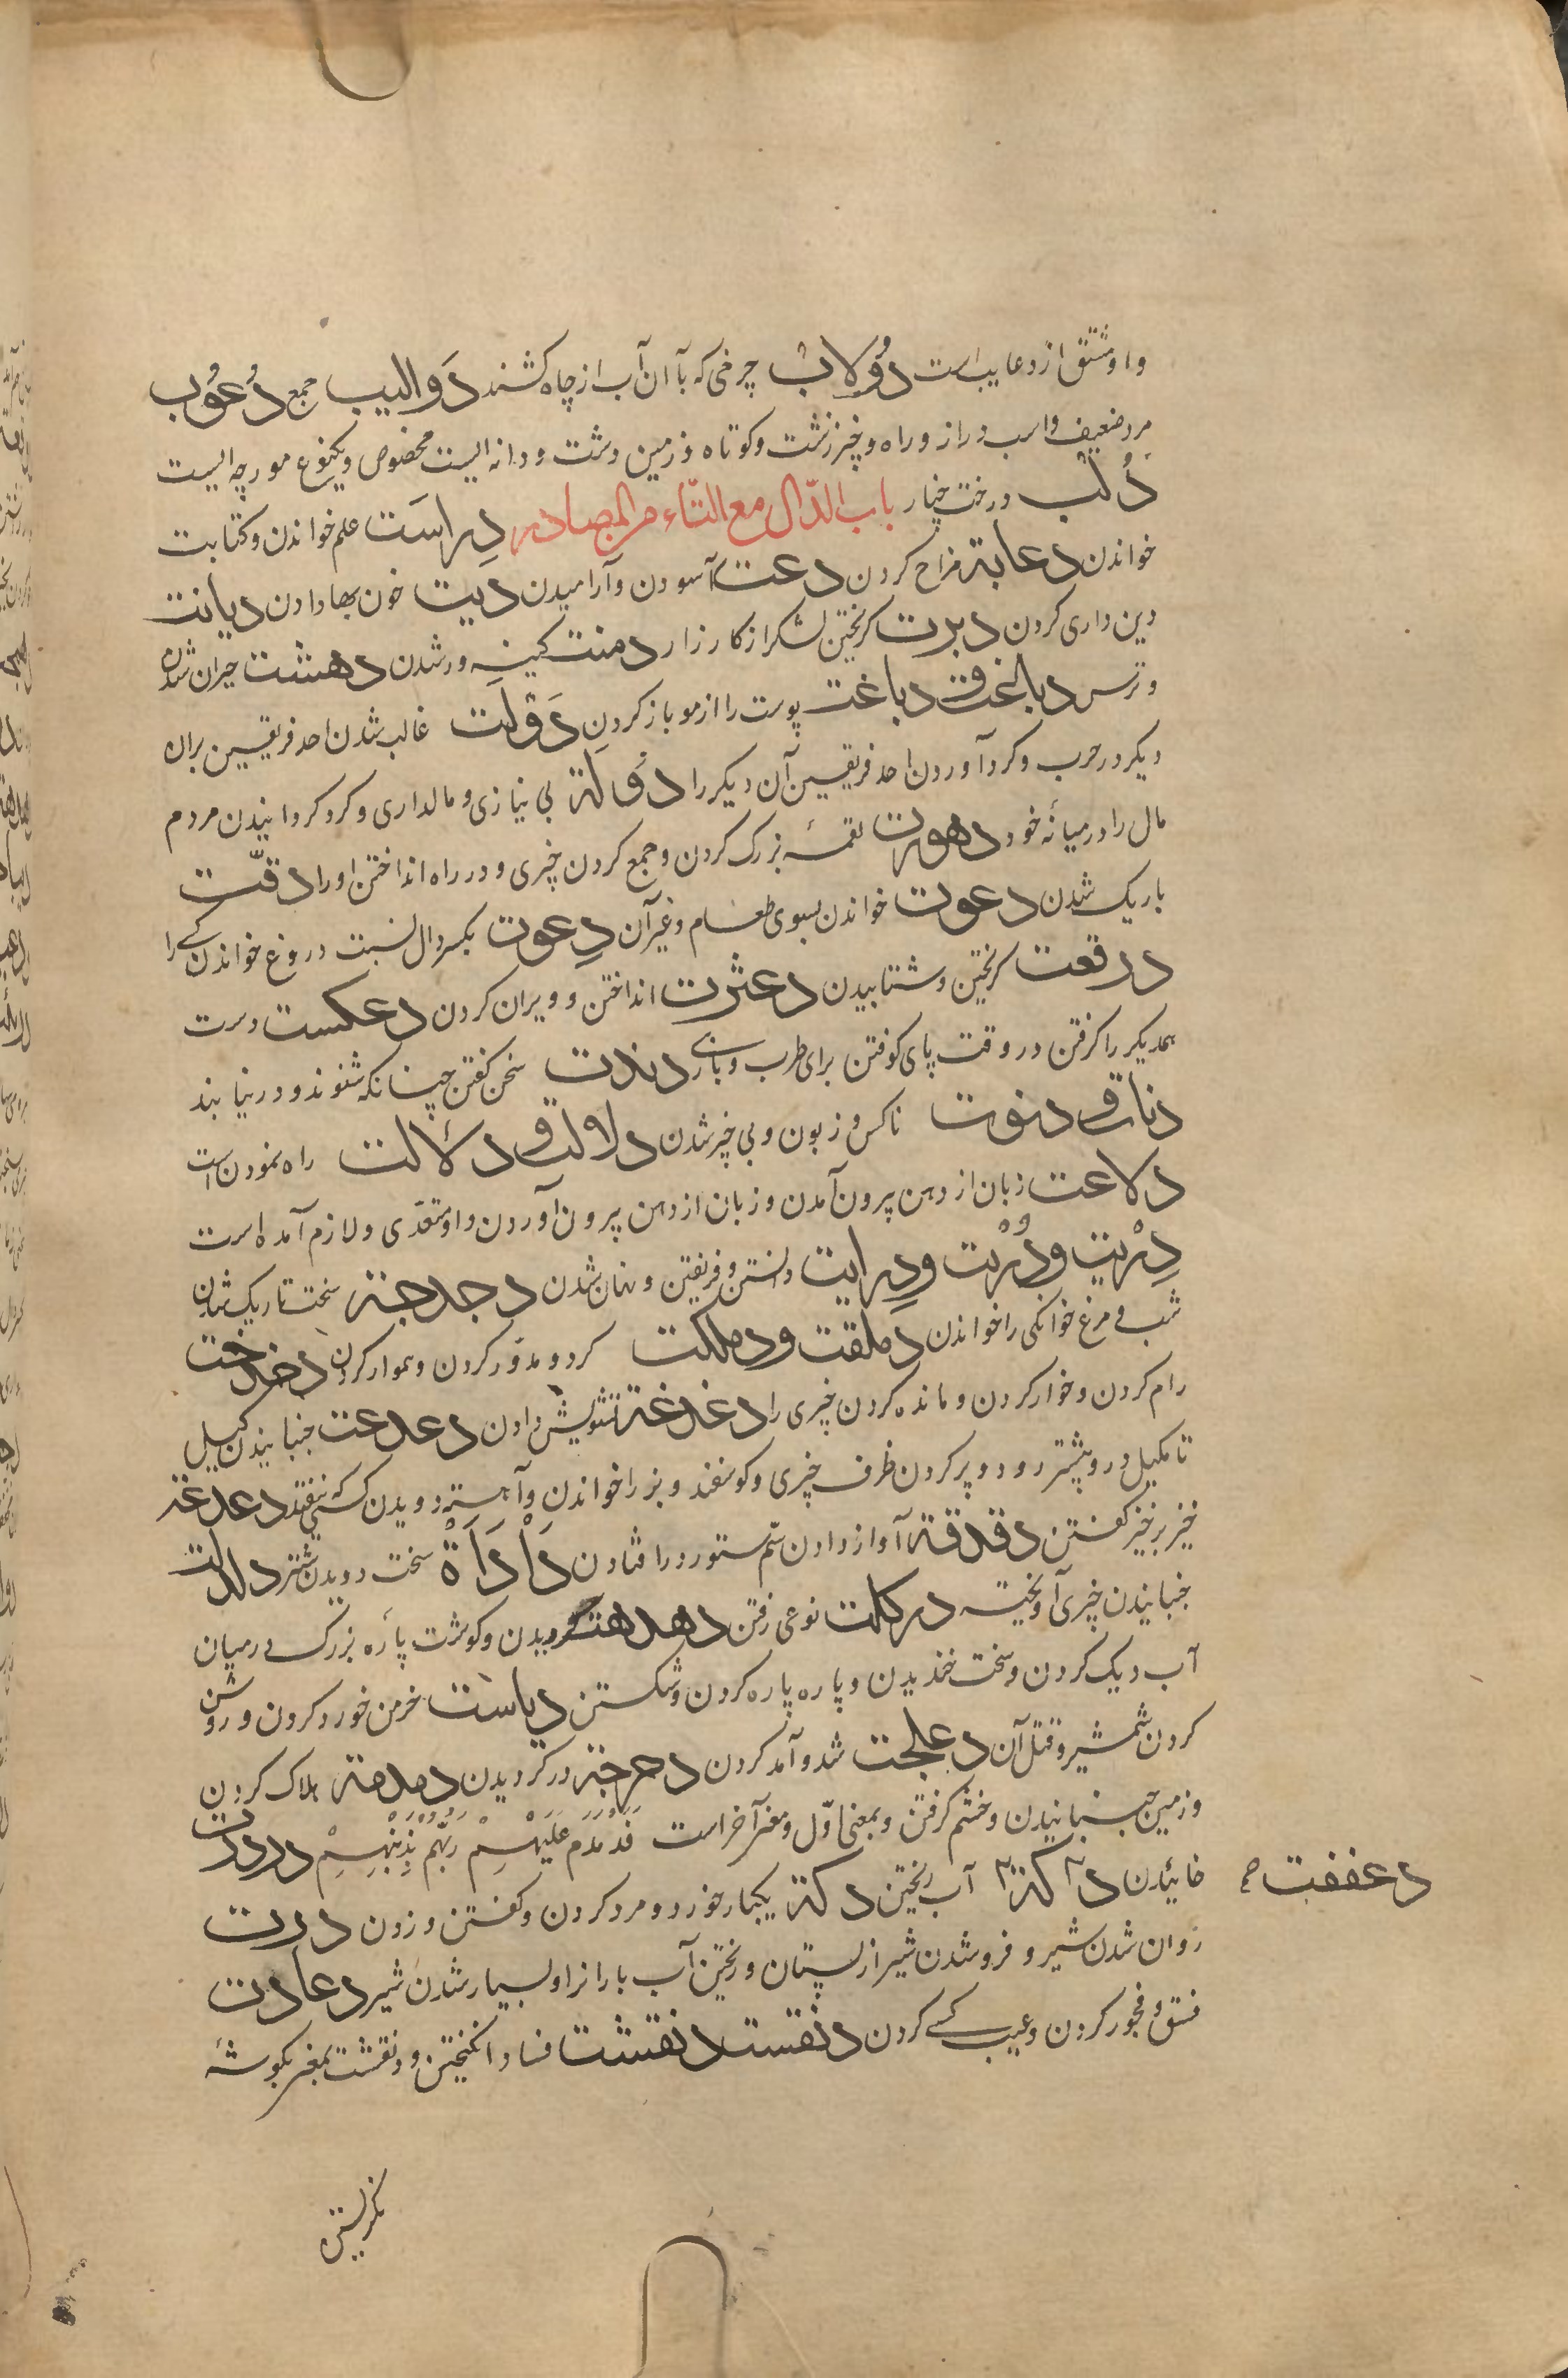 و او مشتق از دعایب است دُولاب چرخی که بآن آب از چاه کشند دَوالیب جمع دُعبُوب
مرد ضعیف و اسب دراز و راه و چیز زشت و کوتاه و زمین دشت و دانه ایست مخصوص و یکنوع مورچه ایست
دُلب درخت چنار باب الدّال مع التّاء من المصادر دِراسَت علم خواندن و کتابت
خواندن دعابة مزاح کردن دعت آسودن و آرامیدن دیت خون بها دادن دیانت
دین داری کردن دبرت کریختن لشکر از کارزار دمنت کینه ور شدن دهشت حیران شدن
و ترس دباغت پوست را از مو باز کردن دَولَت غالب شدن احد فریقین بران
دیکر در حرب و کرد آوردن احد فریقین آن دیکر را دُولة بی نیازی و مالداری و کرد کردانیدن مردم
مال را در میانهٔ خود دهورت لقمهٔ بزرک کردن و جمع کردن چیزی و در راه انداختن او را دقّت
باریک شدن دعوت خواندن بسوی طعام و غیر آن دِعوت بکسر دال نسبت دروغ خواندن کسے را
درقعت کریختن و شتابیدن دعثرت انداختن و ویران کردن دعکست دست
همدیکر را کرفتن در وقت پای کوفتن برای طرب و بازی دندنت سخن کفتن چنانکه شنوند و در نیابند
دنات و دنوت ناکس و زبون و بی چیز شدن دلالت و دلالت راه نمودن است
دلاعت زبان از دهن بیرون آمدن و زبان از دهن بیرون آوردن و او متعدّی و لازم آمده است
دِرْیت و دُرْیت و دِرایت دانستن و فریفتن و نهان شدن دجدجة سخت تاریک شدن
شب و مرغ خوانکی را خواندن دملقت و دملکت کرد و مدوّر کردن و هموار کردن دخدخت
رام کردن و خوار کردن و مانده کردن چیزی را دغدغة تشویش دادن دعدعت جنبانیدن کیل
تا مکیل درو بیشتر رود و پر کردن ظرف چیزی و کوسفند و بز را خواندن و آهسته دویدن کسے نیفتد دعدعة
خیز بر خیز کفتن دقدقة آواز دادن سُم ستور در افتادن دَأْدَأَة سخت دویدن شتر دلدلت
جنبانیدن چیزی آویخته درکلت نوعی رفتن دهدهت کردیدن و کوشت پاره بزرک در میان
آب دیک کردن و سخت خندیدن و پاره پاره کردن و شکستن دیاست خرمن خورد کردن و روشن
کردن شمشیر و قتل آن دعلجت شد و آمد کردن دحرجة در کردیدن دمدمة هلاک کردن
و زمین جنبانیدن و خشم کرفتن و بمعنی اوّل و معنی آخر است فَدَمْدَمَ عَلَیْهِمْ رَبُّهُمْ بِذَنْبِهِمْ دردرت
خائیدن دکة آب ریختن دکة یکبار خورد و مرد کردن و کفتن و زدن دررت
روان شدن شیر و فرو شدن شیر از پستان و ریختن آب بارانرا و بسیار شدن شیر دعارت
فسق و فجور کردن و عیب کسے کردن دنقست دنقشت فساد انکیختن و دنقشت بمعنی بکوشهٔ
دعففت
نکریستن